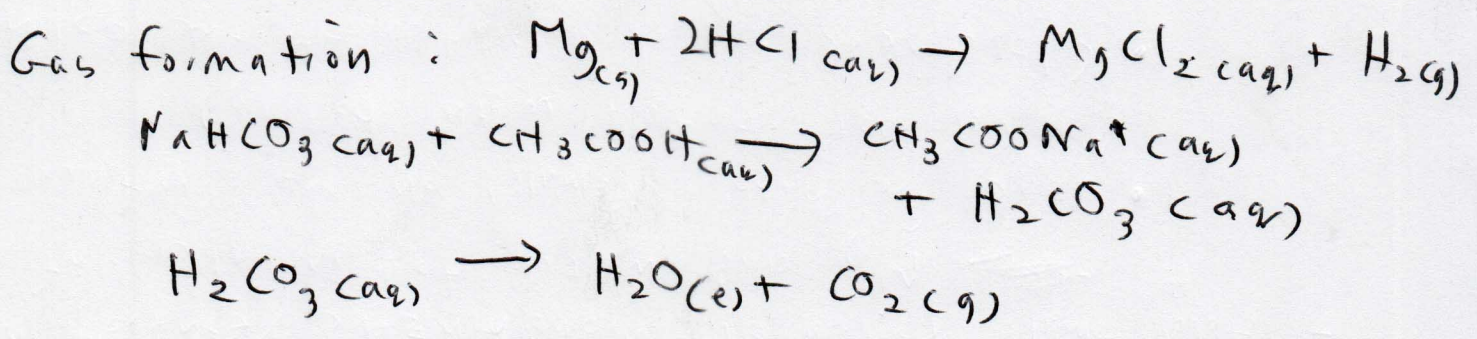 Gas formation : Mg(s) + 2HCl (aq) → MgCl₂ (aq) + H₂ (g)
NaHCO₃ (aq) + CH₃COOH (aq) → CH₃COONa⁺ (aq)
+ H₂CO₃ (aq)
H₂CO₃ (aq) → H₂O(l) + CO₂ (g)